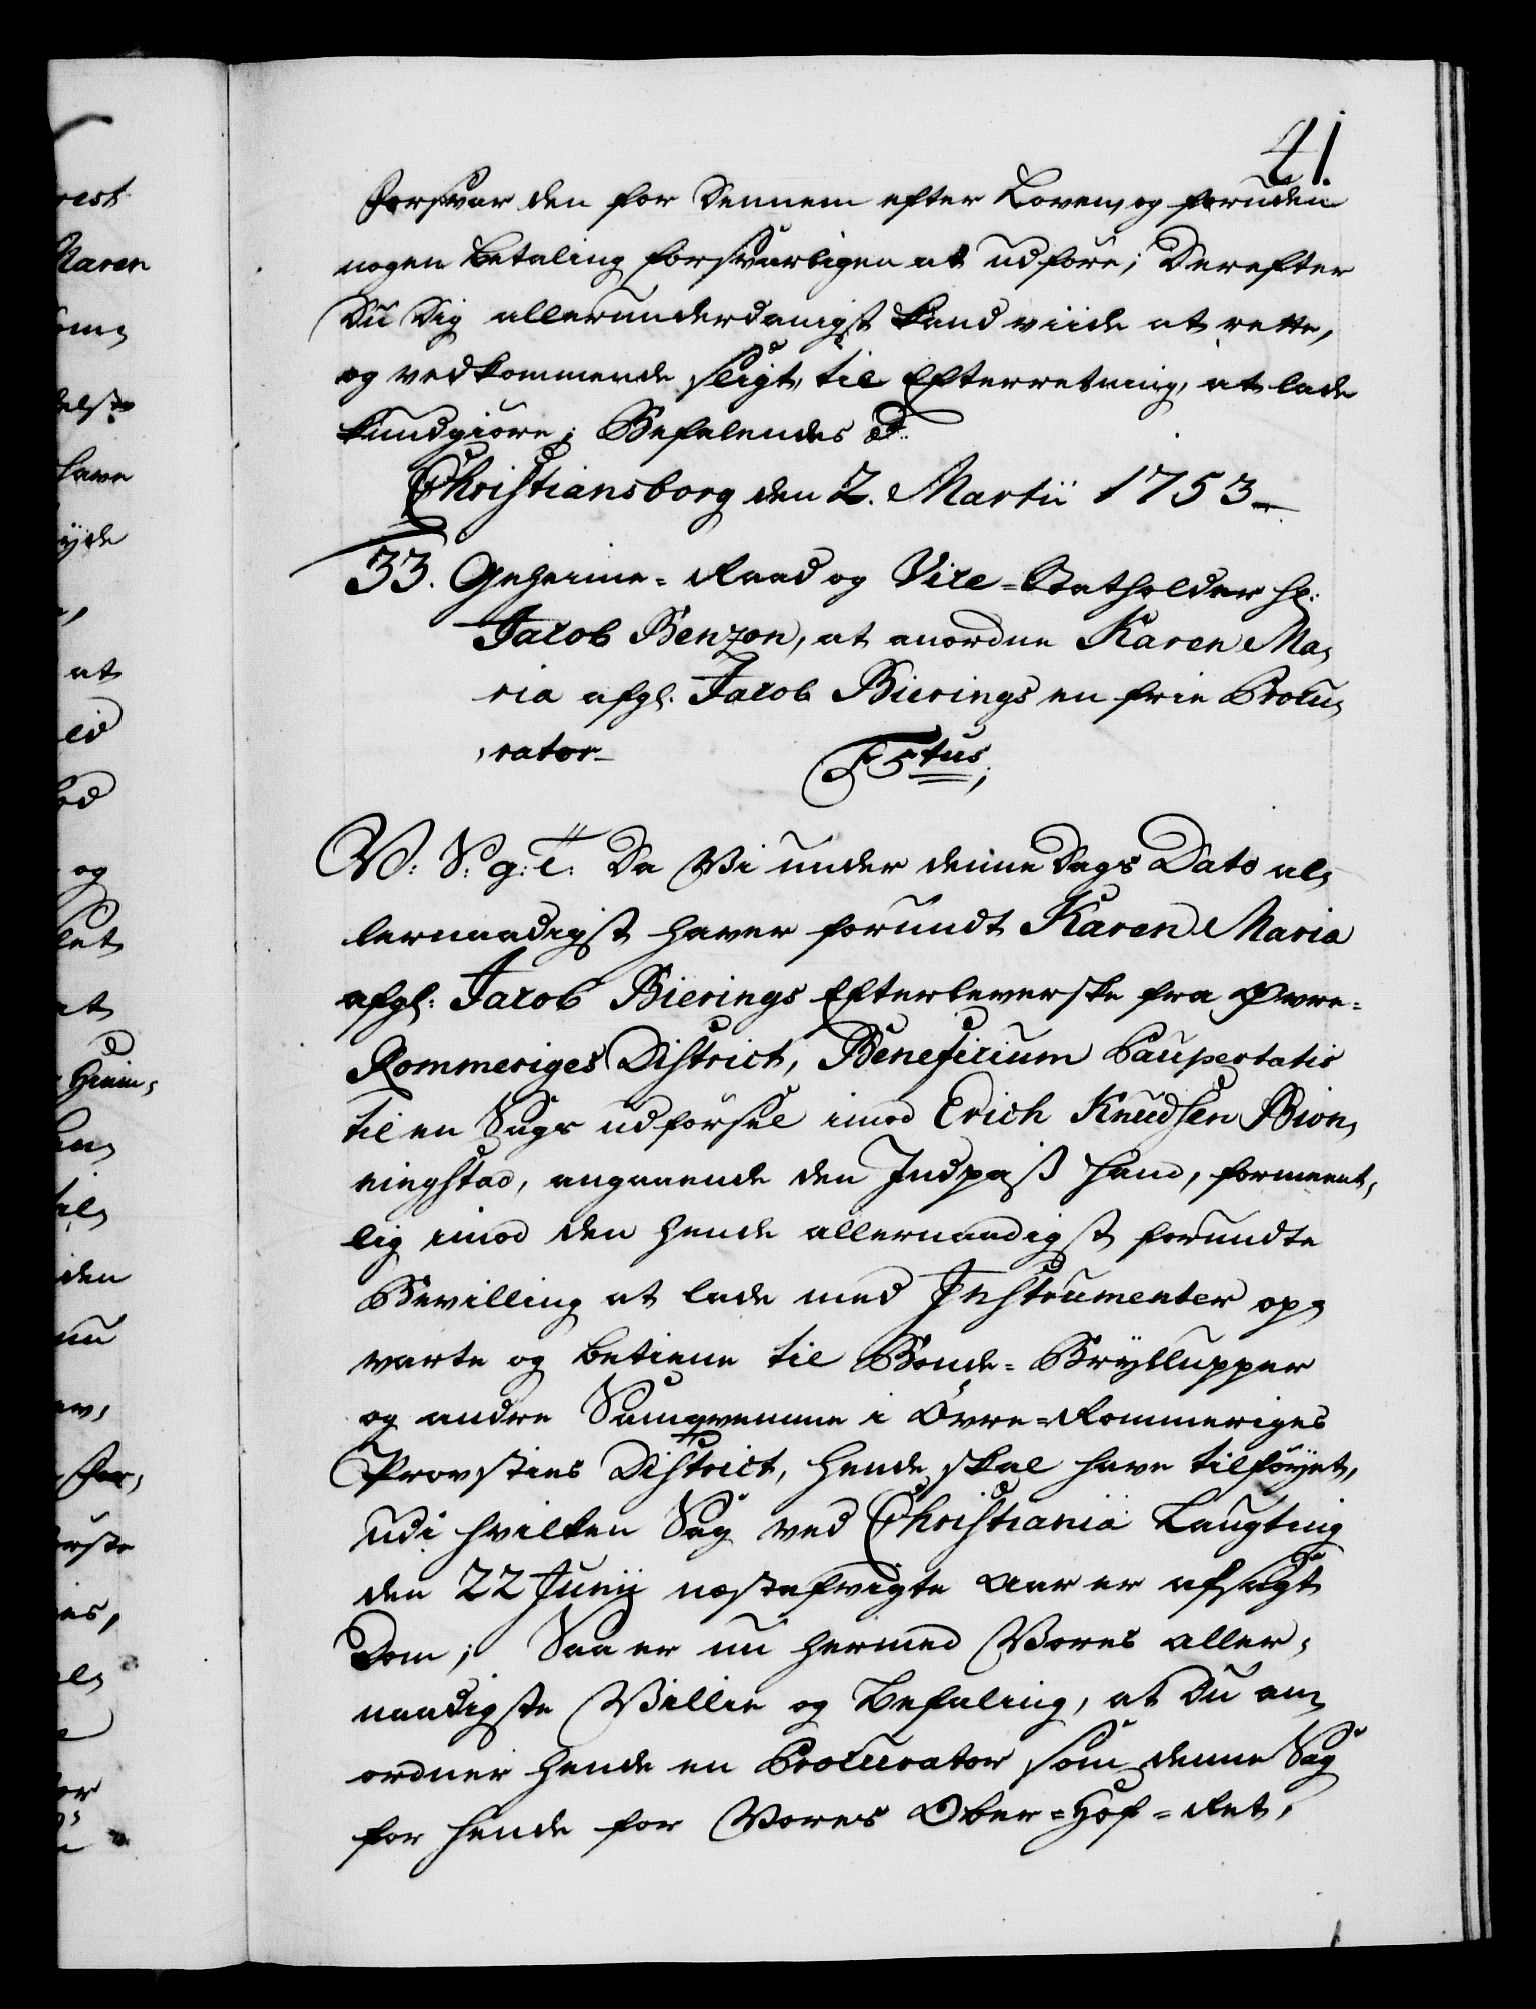 41
Forsvar den for Dennem efter Loven, og foruden
nogen betaling forsvarligen at udføre; Derefter
Du Dig allerunderdanigst kand viide at rette,
og vedkommende sligt til Efterretning, at lade
kundgiøre; Befalendes
Christiansborg den 2. Martii 1753
33. Geheime-Raad og Vice-Statholder Hr:
Jacob Benzon, at anordne Karen Ma,
ria afgl. Jacob Bierings en frie Procu,
,rator
F 5tus
V: S: g: T: Da Vi under denne Dags Dato al,
lernaadigst haver forundt Karen Maria
afgl: Jacob Bierings Efterleverske fra Øvre-
Rommeriges District, Beneficium Paupertatis
til en Sags udførsel imod Erich Knudsen Bion,
ningstad, angaaende den Indpaß hand, formeent,
lig imod den hende allernaadigst forundte
Bevilling at lade med Instrumenter op,
varte og betiene til Bonde-Bryllupper
og andre Samqvemme i Øvre-Rommeriges
Provsties District, hende skal have tilføyet,
udi hvilken Sag ved Christiania Laugting
den 22 Junij næstafvigte Aar er afsagt
Dom; Saa er nu hermed Vores aller,
naadigste Villie og Befaling, at Du an,
ordner hende en Procurator som denne Sag
for hende for Vores Ober-Hof-Ret,
rest
Karen
have
at
og
at
den
nu